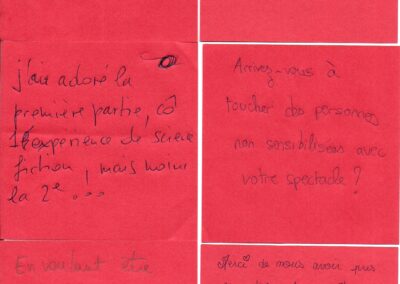 j'ai adoré la
première partie, cô
l'expérience de science
fiction, mais moins
la 2e ...
Arrivez-vous à
toucher des personnes
non sensibilisées avec
votre spectacle ?
En voulant être
Merci de nous avoir